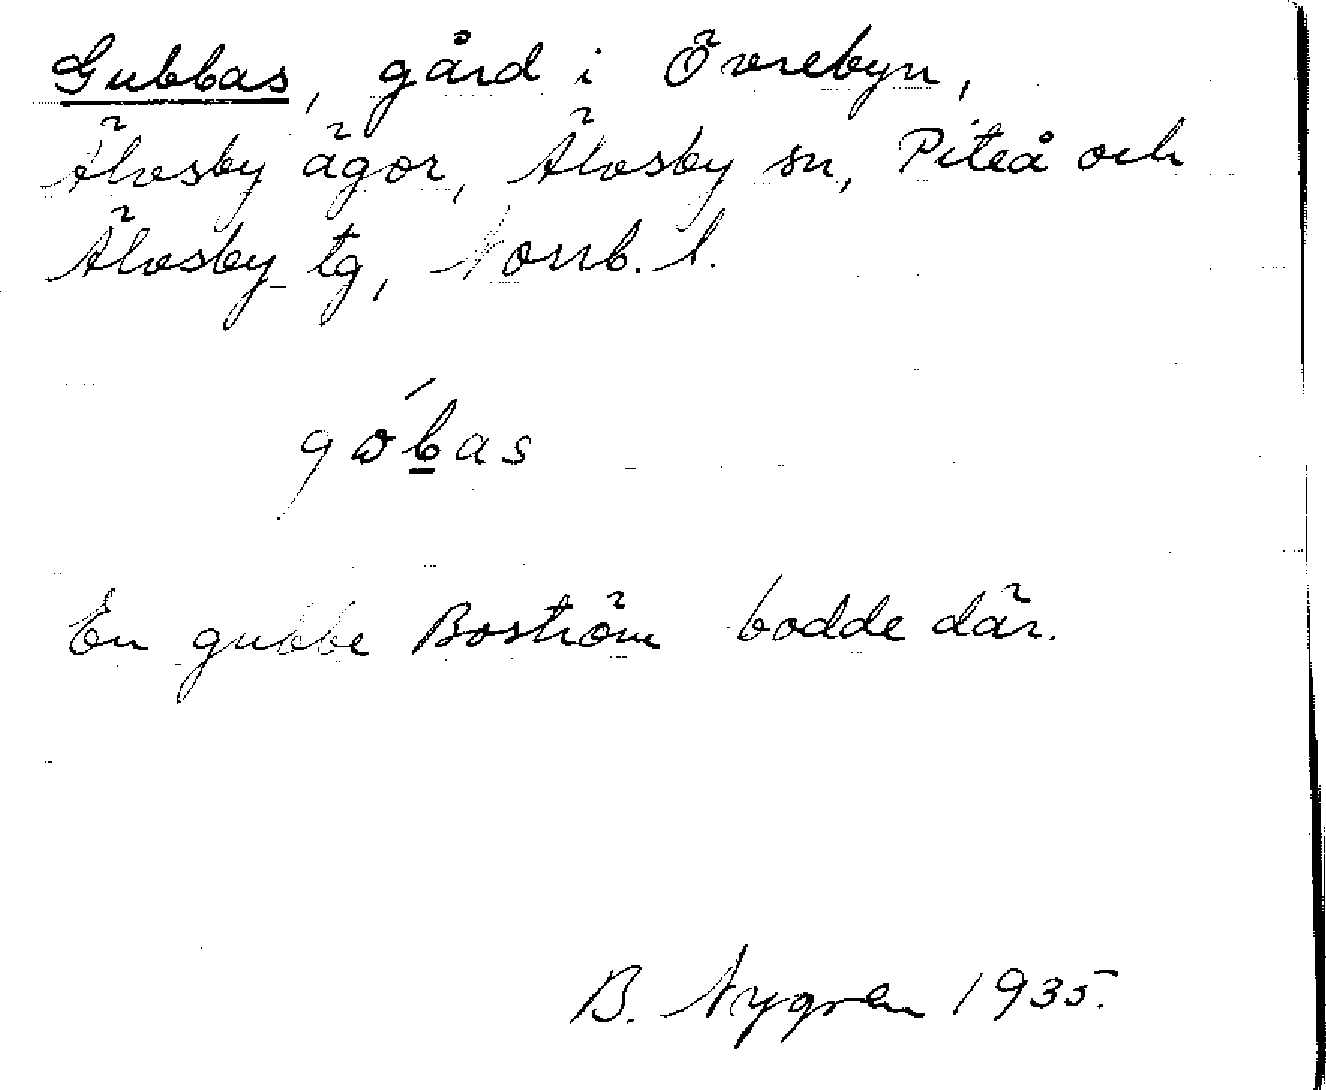 Gubbas, gård i Övrebyn,
Älvsby ägor, Älvsby sn, Piteå och
Älvsby tg, Norrb. l.
gobas
En gubbe Boström bodde där.
B. Nygren 1935.